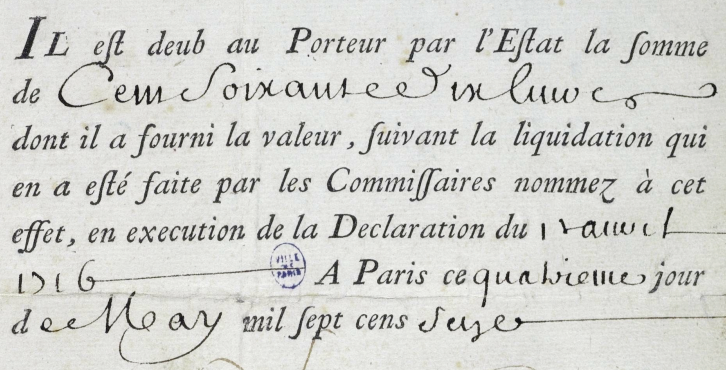 IL eſt deub au Porteur par l'Eſtat la ſomme
de Cent Soixante Dix livres
dont il a fourni la valeur, ſuivant la liquidation qui
en a eſté faite par les Commiſſaires nommez à cet
effet, en execution de la Declaration du 1r auril
1716 VILLE DE PARIS A Paris ce quatrieme jour
de May mil ſept cens Seize